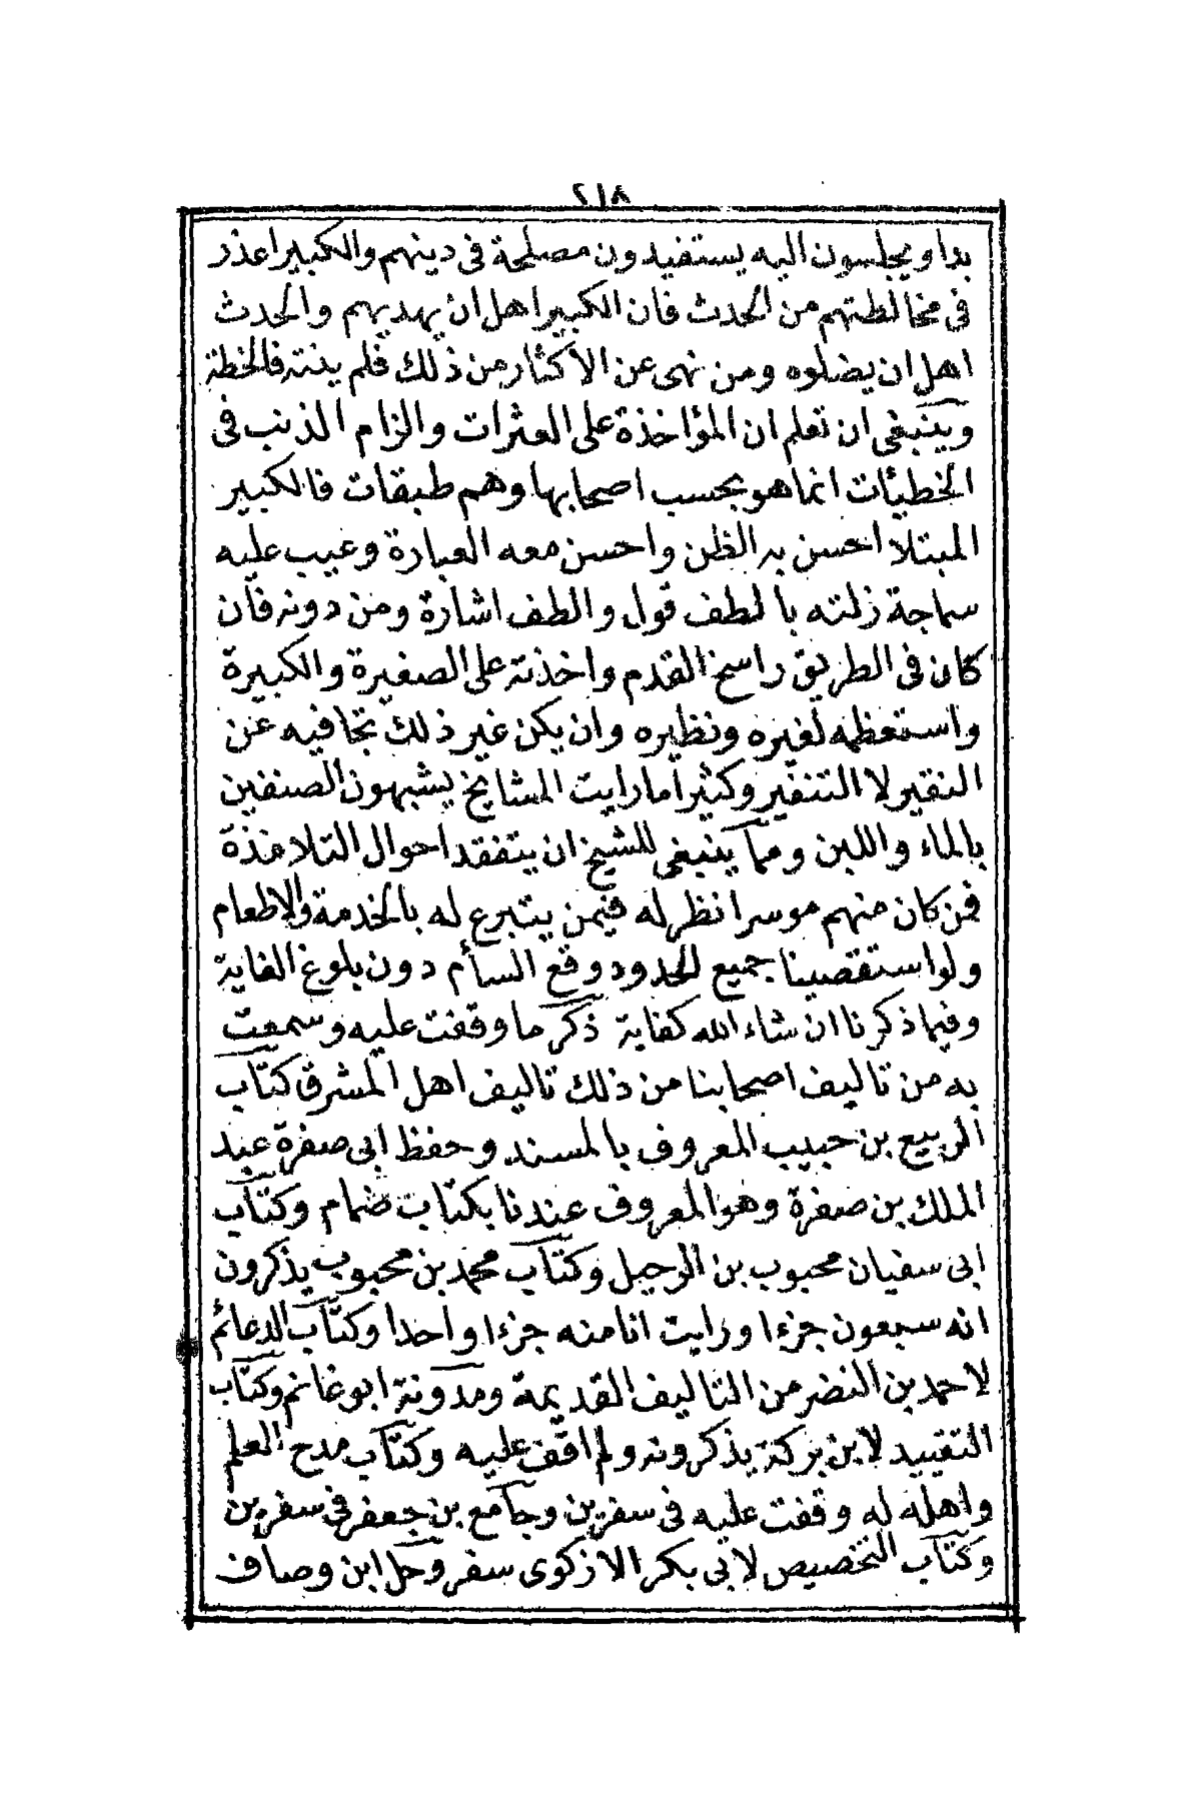 ٢١٨
بدا ويجلسون اليه يستفيدون مصلحة فى دينهم والكبير اعذر
فى مخالطتهم من الحدث فان الكبير اهل ان يهديهم والحدث
اهل ان يضلوه ومن نهى عن الاكثار من ذلك فلم ينته فالخطة
وينبغى ان تعلم ان المؤاخذة على العثرات والزام الذنب فى
الخطيئات انما هو بحسب اصحابها وهم طبقات فالكبير
المبتلا احسن به الظن واحسن معه العبارة وعيب عليه
سماجة زلته بالطف قول والطف اشارة ومن دونه فان
كان فى الطريق راسخ القدم واخذته على الصغيرة والكبيرة
واستعظمه لغيره ونظيره وان يكن غير ذلك تجافيه عن
النقير لا التنفير وكثيرا ما رايت المشايخ يشبهون الصنفين
بالماء واللبن ومما ينبغى للشيخ ان يتفقد احوال التلامذة
فمن كان منهم موسرا نظر له فيمن يتبرع له بالخدمة والاطعام
ولو استقصينا جميع الحدود وقع السأم دون بلوغ الغاية
وفيما ذكرنا ان شاء الله كفاية ذكر ما وقفت عليه وسمعت
به من تاليف اصحابنا من ذلك تاليف اهل المشرق كتاب
الربيع بن حبيب المعروف بالمسند وحفظ ابى صفرة عبد
الملك بن صفرة وهو المعروف عندنا بكتاب ضمام وكتاب
ابى سفيان محبوب بن الرحيل وكتاب محمد بن محبوب يذكرون
انه سبعون جزءا ورايت انا منه جزءا واحدا وكتاب الدعائم
لاحمد بن النضر من التاليف القديمة ومدونة ابو غانم وكتاب
التقييد لابن بركة يذكرونه ولم اقف عليه وكتاب مدح العلم
واهله له وقفت عليه فى سفرين وجامع بن جعفر فى سفرين
وكتاب التخصيص لابى بكر الازكوى سفر وحل ابن وصاف